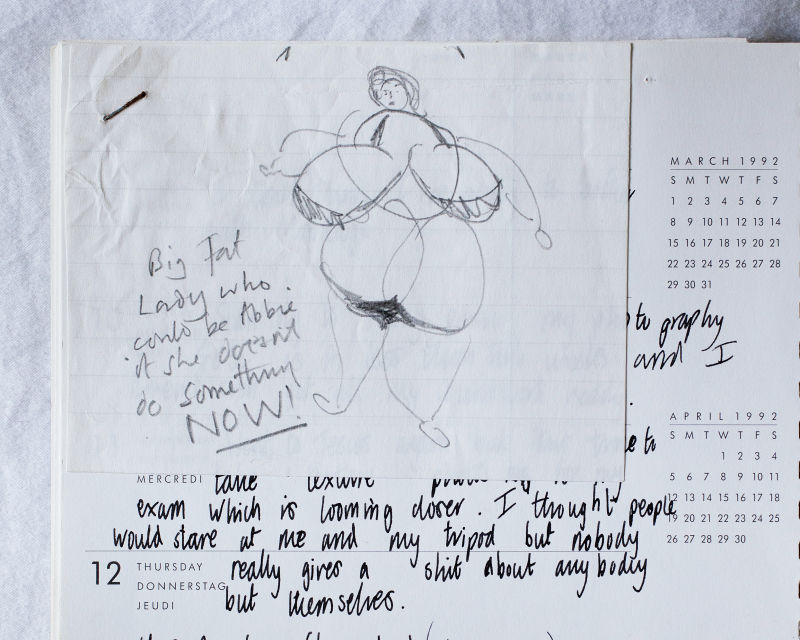 Big Fat
Lady who.
could be Abbie
if she doesn't
do something
NOW!
MARCH 1992
S M T W T F S
1 2 3 4 5 6 7
8 9 10 11 12 13 14
15 16 17 18 19 20 21
22 23 24 25 26 27 28
29 30 31
to graphy
and I
APRIL 1992
S M T W T F S
1 2 3 4
5 6 7 8 9 10 11
12 13 14 15 16 17 18
19 20 21 22 23 24 25
26 27 28 29 30
e to
MERCREDI take texture
exam which is looming closer. I thought people
would stare at me and my tripod but nobody
12 THURSDAY really gives a shit about anybody
DONNERSTAG
JEUDI but themselves.